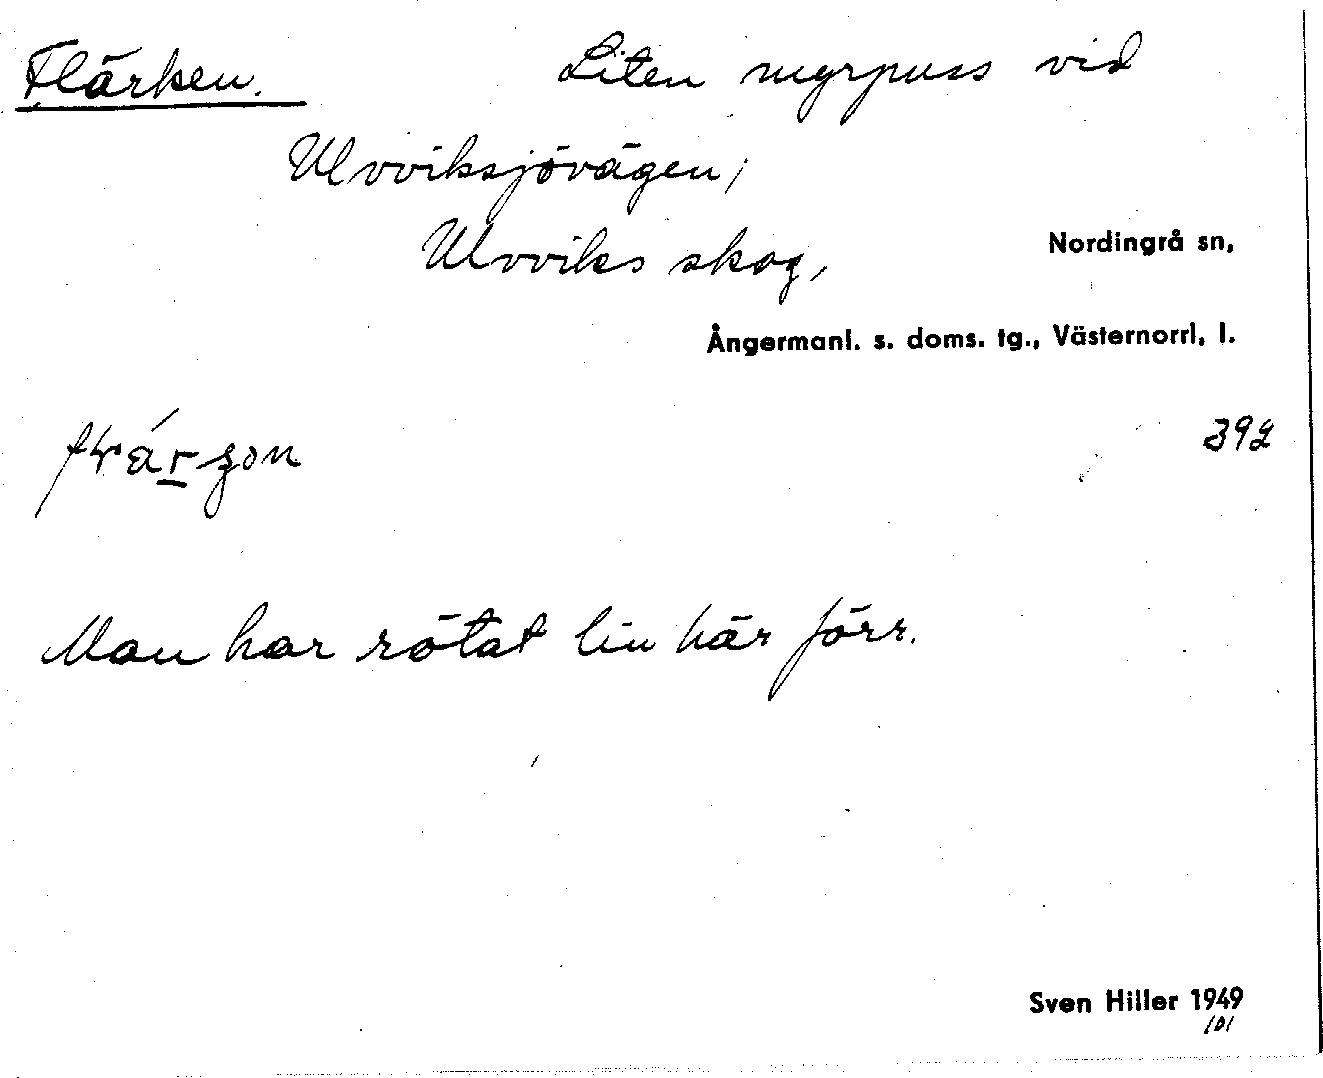 Flärken. Liten myrpuss vid
Ulvviksjövägen,
Ulvviks skog, Nordingrå sn,
Ångermanl. s. doms. tg., Västernorrl. l.
392
Man har rötat lin här förr.
Sven Hiller 1949
101